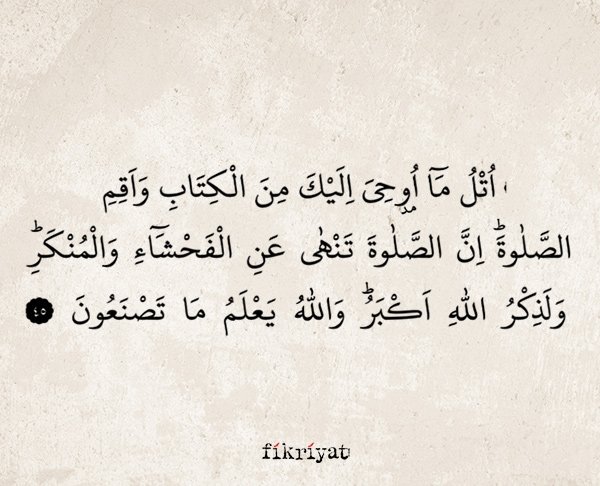 اُتْلُ مَٓا اُو۫حِيَ اِلَيْكَ مِنَ الْكِتَابِ وَاَقِمِ
الصَّلٰوةَۜ اِنَّ الصَّلٰوةَ تَنْهٰى عَنِ الْفَحْشَٓاءِ وَالْمُنْكَرِۜ
وَلَذِكْرُ اللّٰهِ اَكْبَرُۜ وَاللّٰهُ يَعْلَمُ مَا تَصْنَعُونَ ٤٥
fikriyat